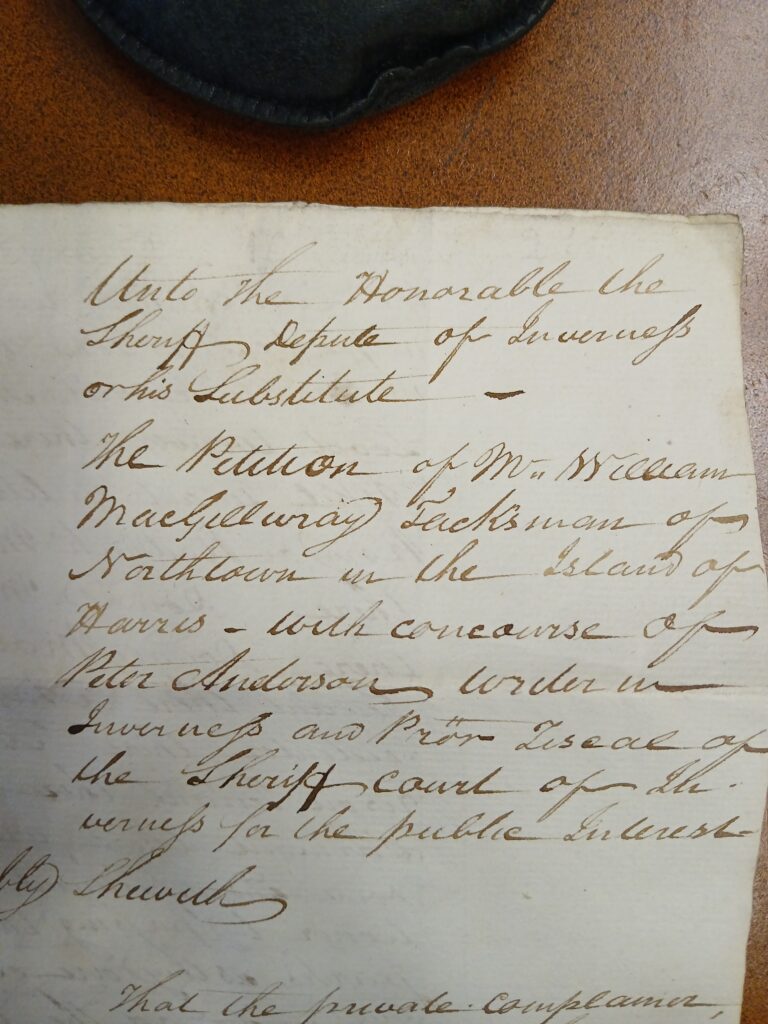 Unto the Honorable the
Sheriff Depute of Inverness
or his Substitute –
The Petition of Mr. William
MacGillivray Tacksman of
Northtown in the Island of
Harris – with concourse of
Peter Anderson writer in
Inverness and Prör Fiscal of
the Sheriff court of In-
verness for the public Interest-
bly Sheweth
That the private complainer,